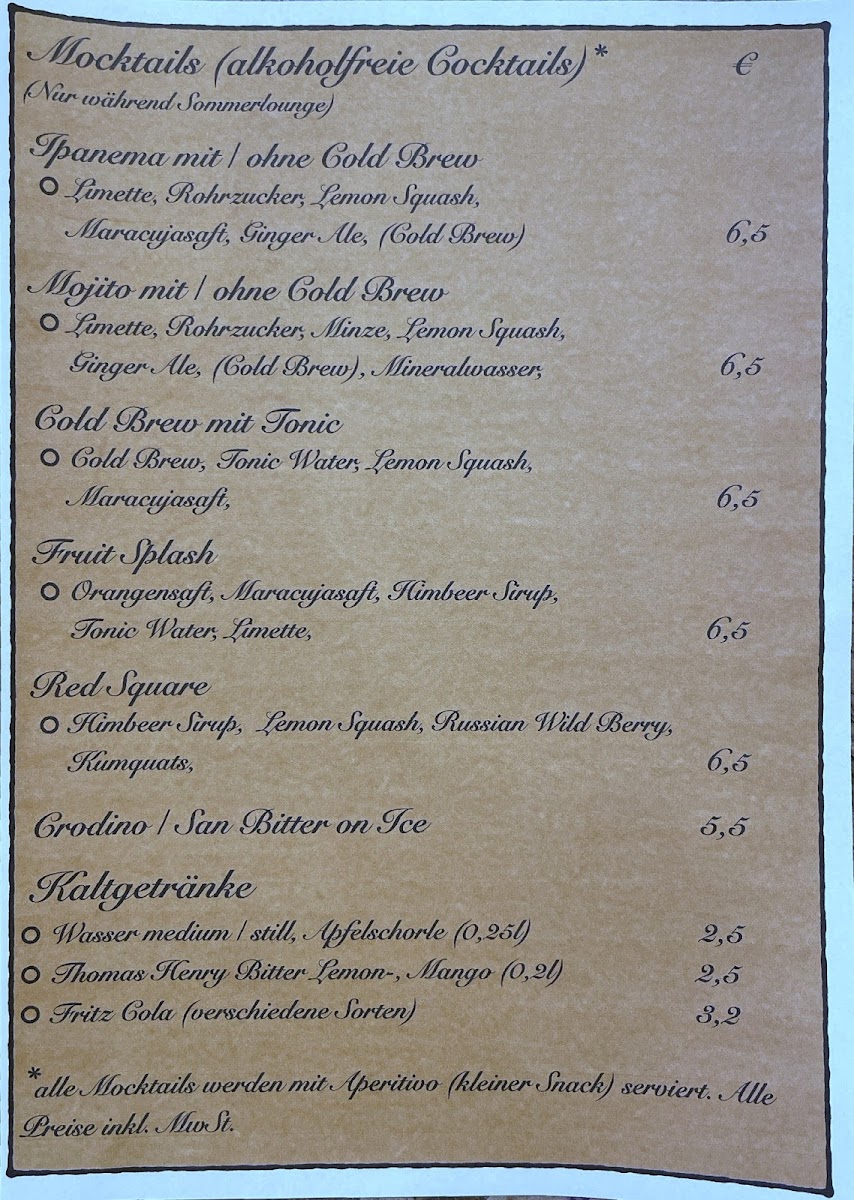 Mocktails (alkoholfreie Cocktails)* €
(Nur während Sommerlounge)
Ipanema mit / ohne Cold Brew
Limette, Rohrzucker, Lemon Squash,
Maracujasaft, Ginger Ale, (Cold Brew) 6,5
Mojito mit / ohne Cold Brew
Limette, Rohrzucker, Minze, Lemon Squash,
Ginger Ale, (Cold Brew), Mineralwasser, 6,5
Cold Brew mit Tonic
Cold Brew, Tonic Water, Lemon Squash,
Maracujasaft, 6,5
Fruit Splash
Orangensaft, Maracujasaft, Himbeer Sirup,
Tonic Water, Limette, 6,5
Red Square
Himbeer Sirup, Lemon Squash, Russian Wild Berry,
Kumquats, 6,5
Crodino / San Bitter on Ice 5,5
Kaltgetränke
Wasser medium / still, Apfelschorle (0,25l) 2,5
Thomas Henry Bitter Lemon-, Mango (0,2l) 2,5
Fritz Cola (verschiedene Sorten) 3,2
*alle Mocktails werden mit Aperitivo (kleiner Snack) serviert. Alle
Preise inkl. MwSt.